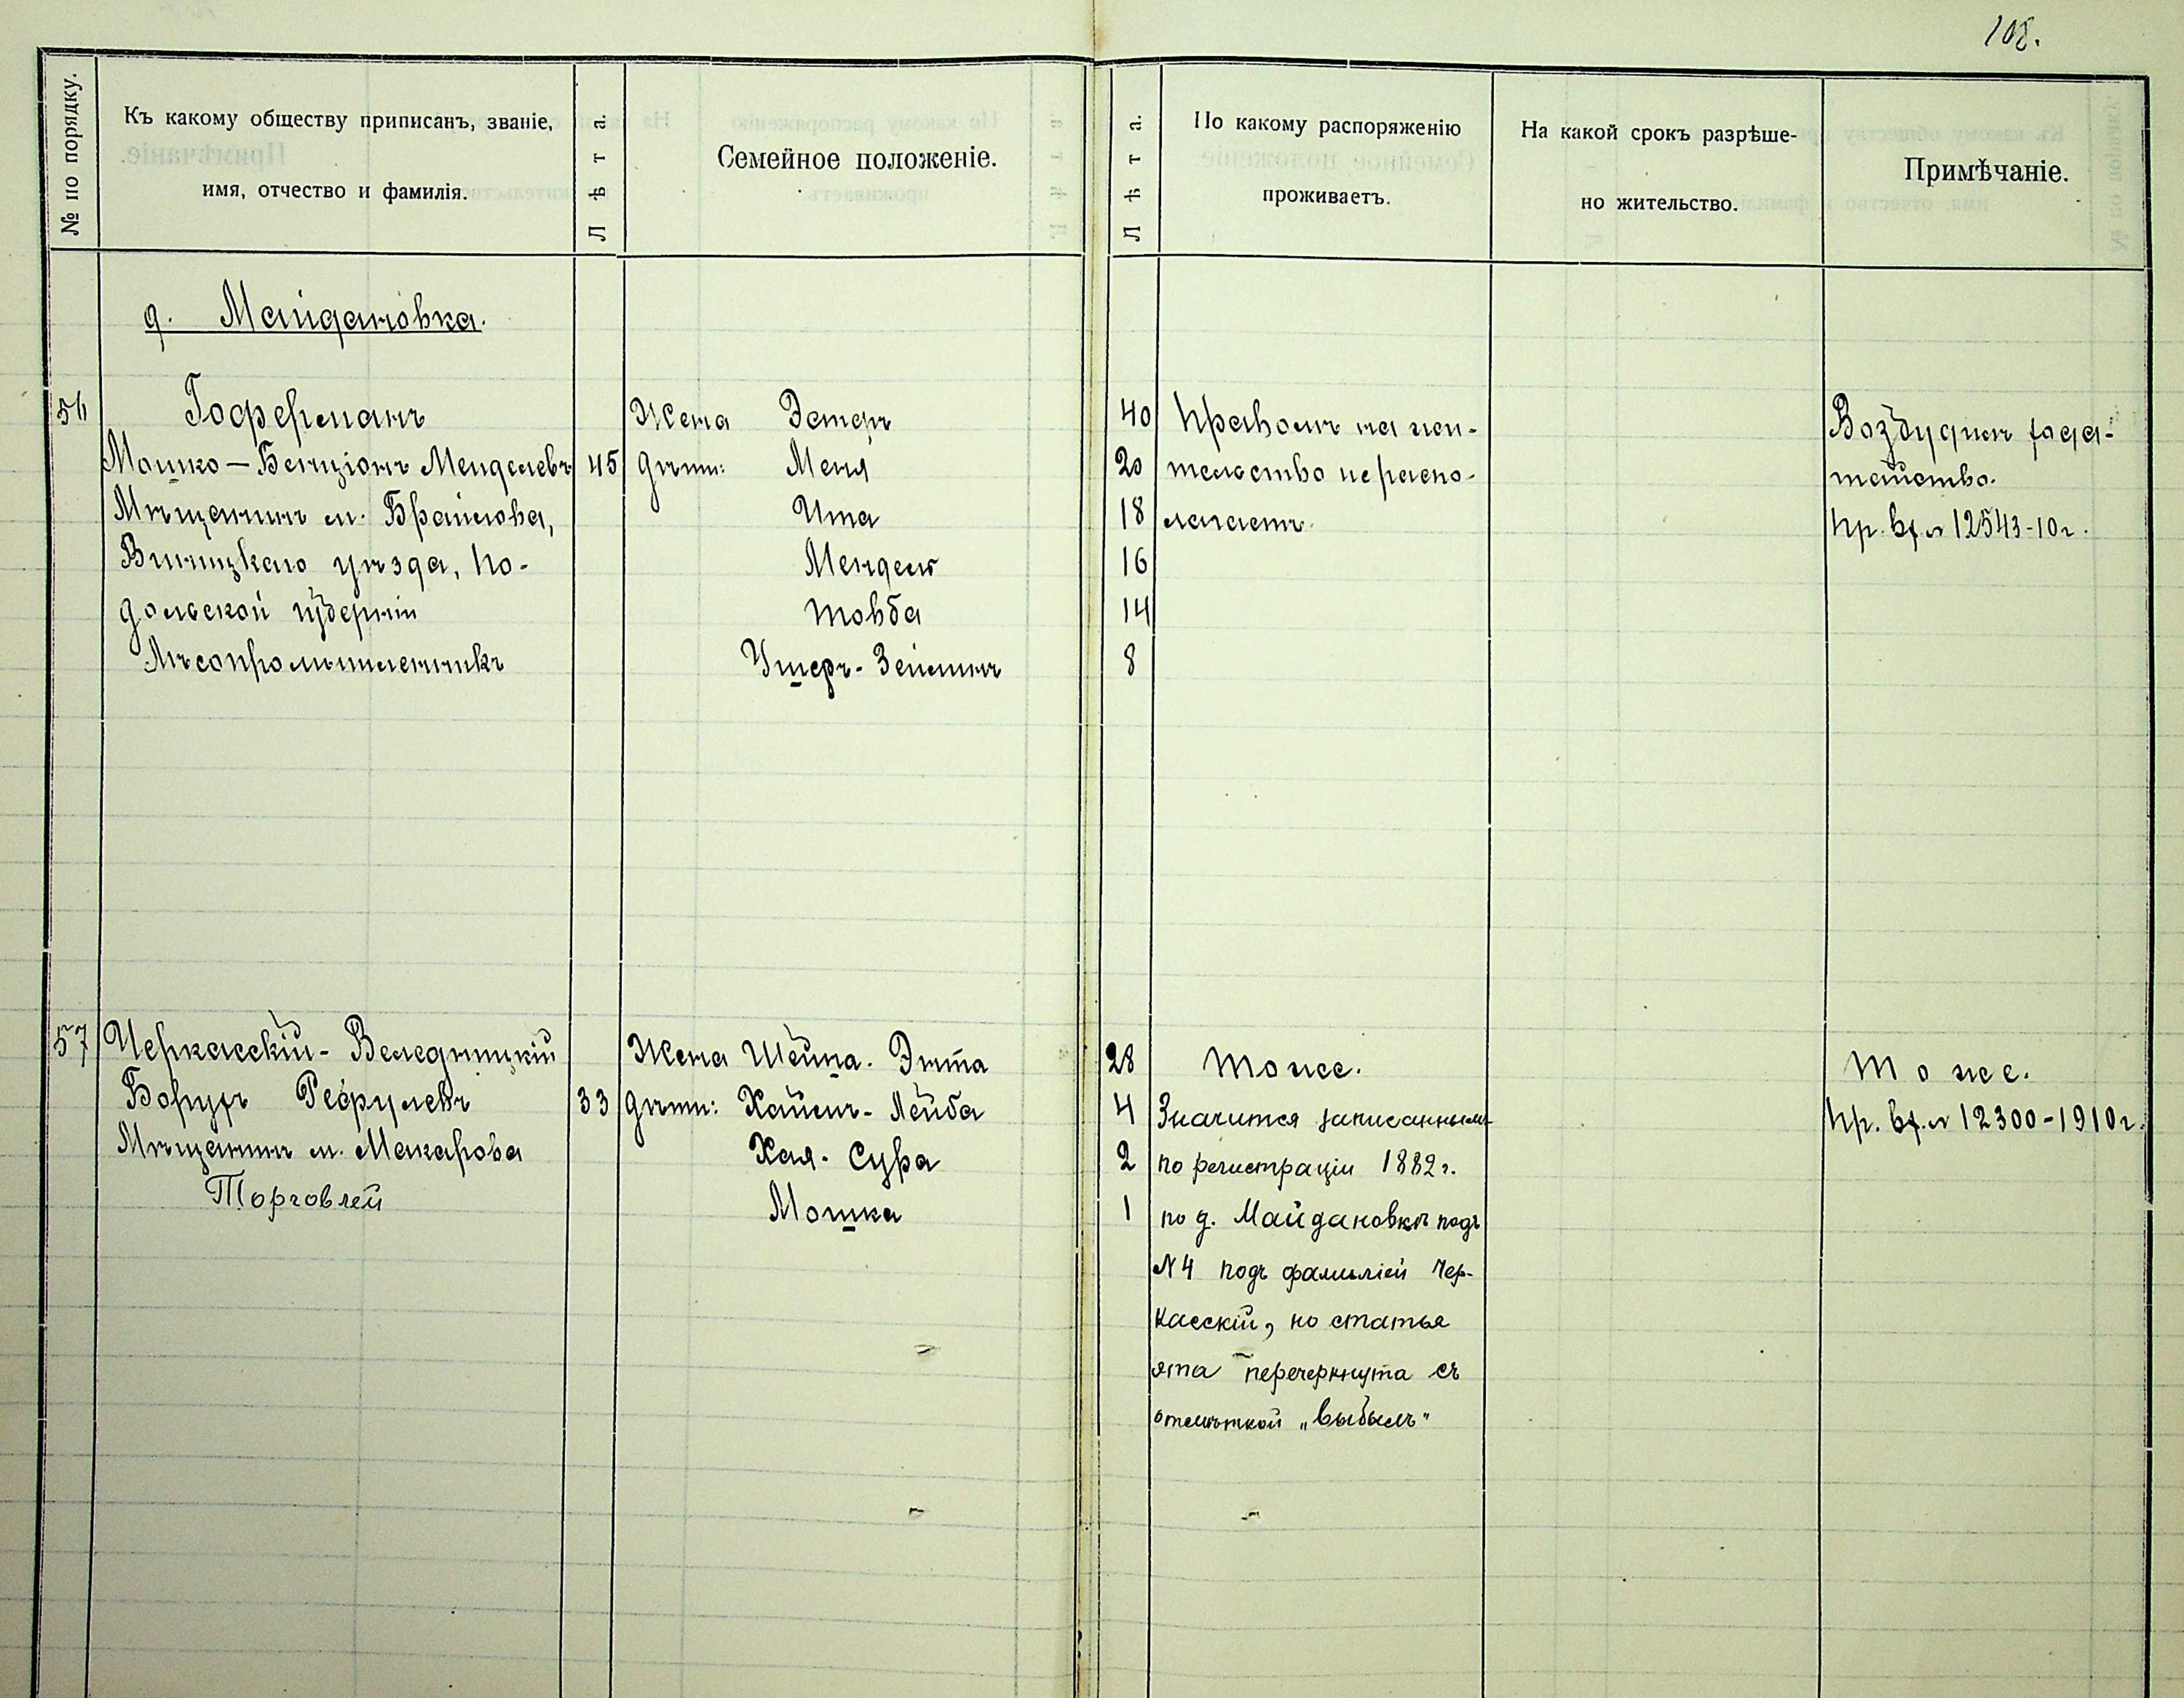 108.
№ по порядку.
Къ какому обществу приписанъ, званіе,
имя, отчество и фамилія.
Лѣта.
Семейное положеніе.
Лѣта.
По какому распоряженію
проживаетъ.
На какой срокъ разрѣше-
но жительство.
Примѣчаніе.
д. Майдановка.
56
Гоферманъ
Мошко-Бенціонъ Менделевъ 45
Мѣщанинъ м. Браилова,
Виницкаго уѣзда, По-
дольской губерніи
Лѣсопромышленникъ
Жена Эстеръ 40
Дѣти: Меня 20
Ита 18
Мендель 16
Товба 14
Ушеръ-Зейликъ 8
Правомъ на жи-
тельство не распо-
лагаетъ.
Возбудилъ хода-
тайство.
Пр. вх. № 12543-10г.
57
Черкасскій-Веледницкій
Борухъ Гершулевъ 33
Мѣщанинъ м. Макарова
Торговлей
Жена Шейна-Этта 28
Дѣти: Хаимъ-Лейба 4
Хая-Сура 2
Мошка 1
Тоже.
Значится записаннымъ
по регистраціи 1882г.
по д. Майдановкѣ подъ
№ 4 подъ фамиліей Чер-
касскій, но статья
эта перечеркнута съ
отмѣткой „выбылъ"
Тоже.
Пр. вх. № 12300-1910г.